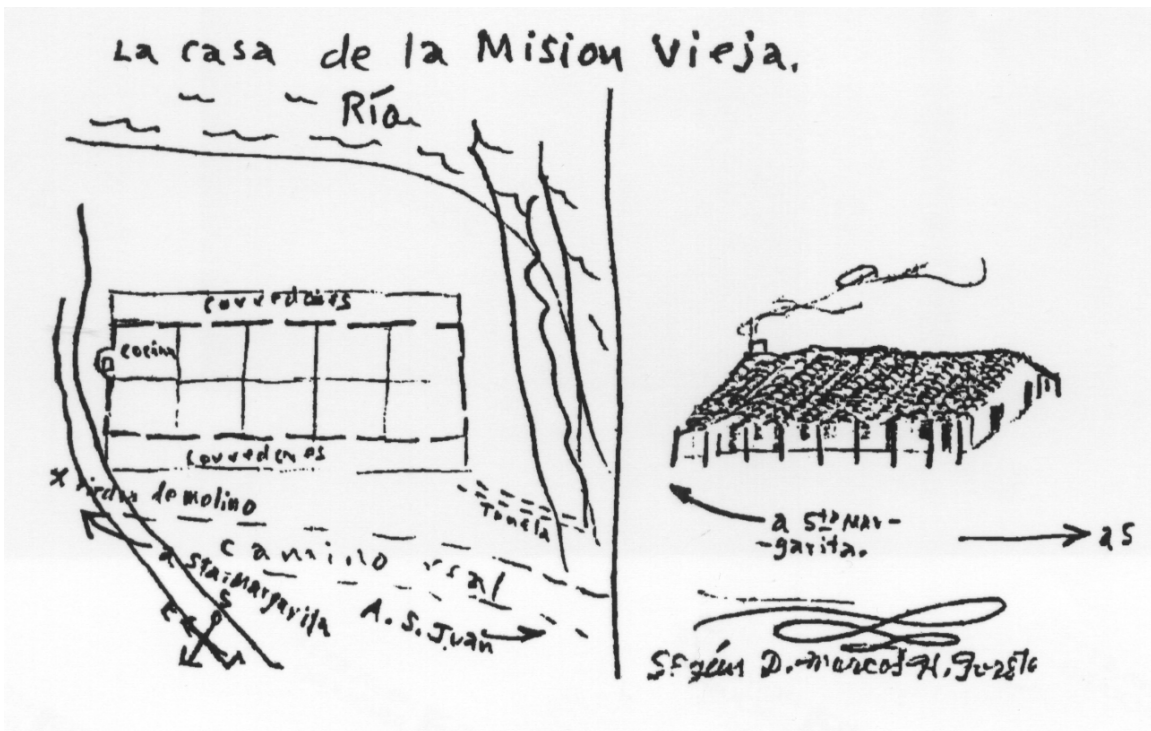 La casa de la Mision Vieja.
Río
corredores
cocina
corredores
x piedra de molino
Tunela
camino real
a Sta. Margarita
A. S. Juan
S
a Sta Mar-
-garita.
a S
Según D. Marcos H.